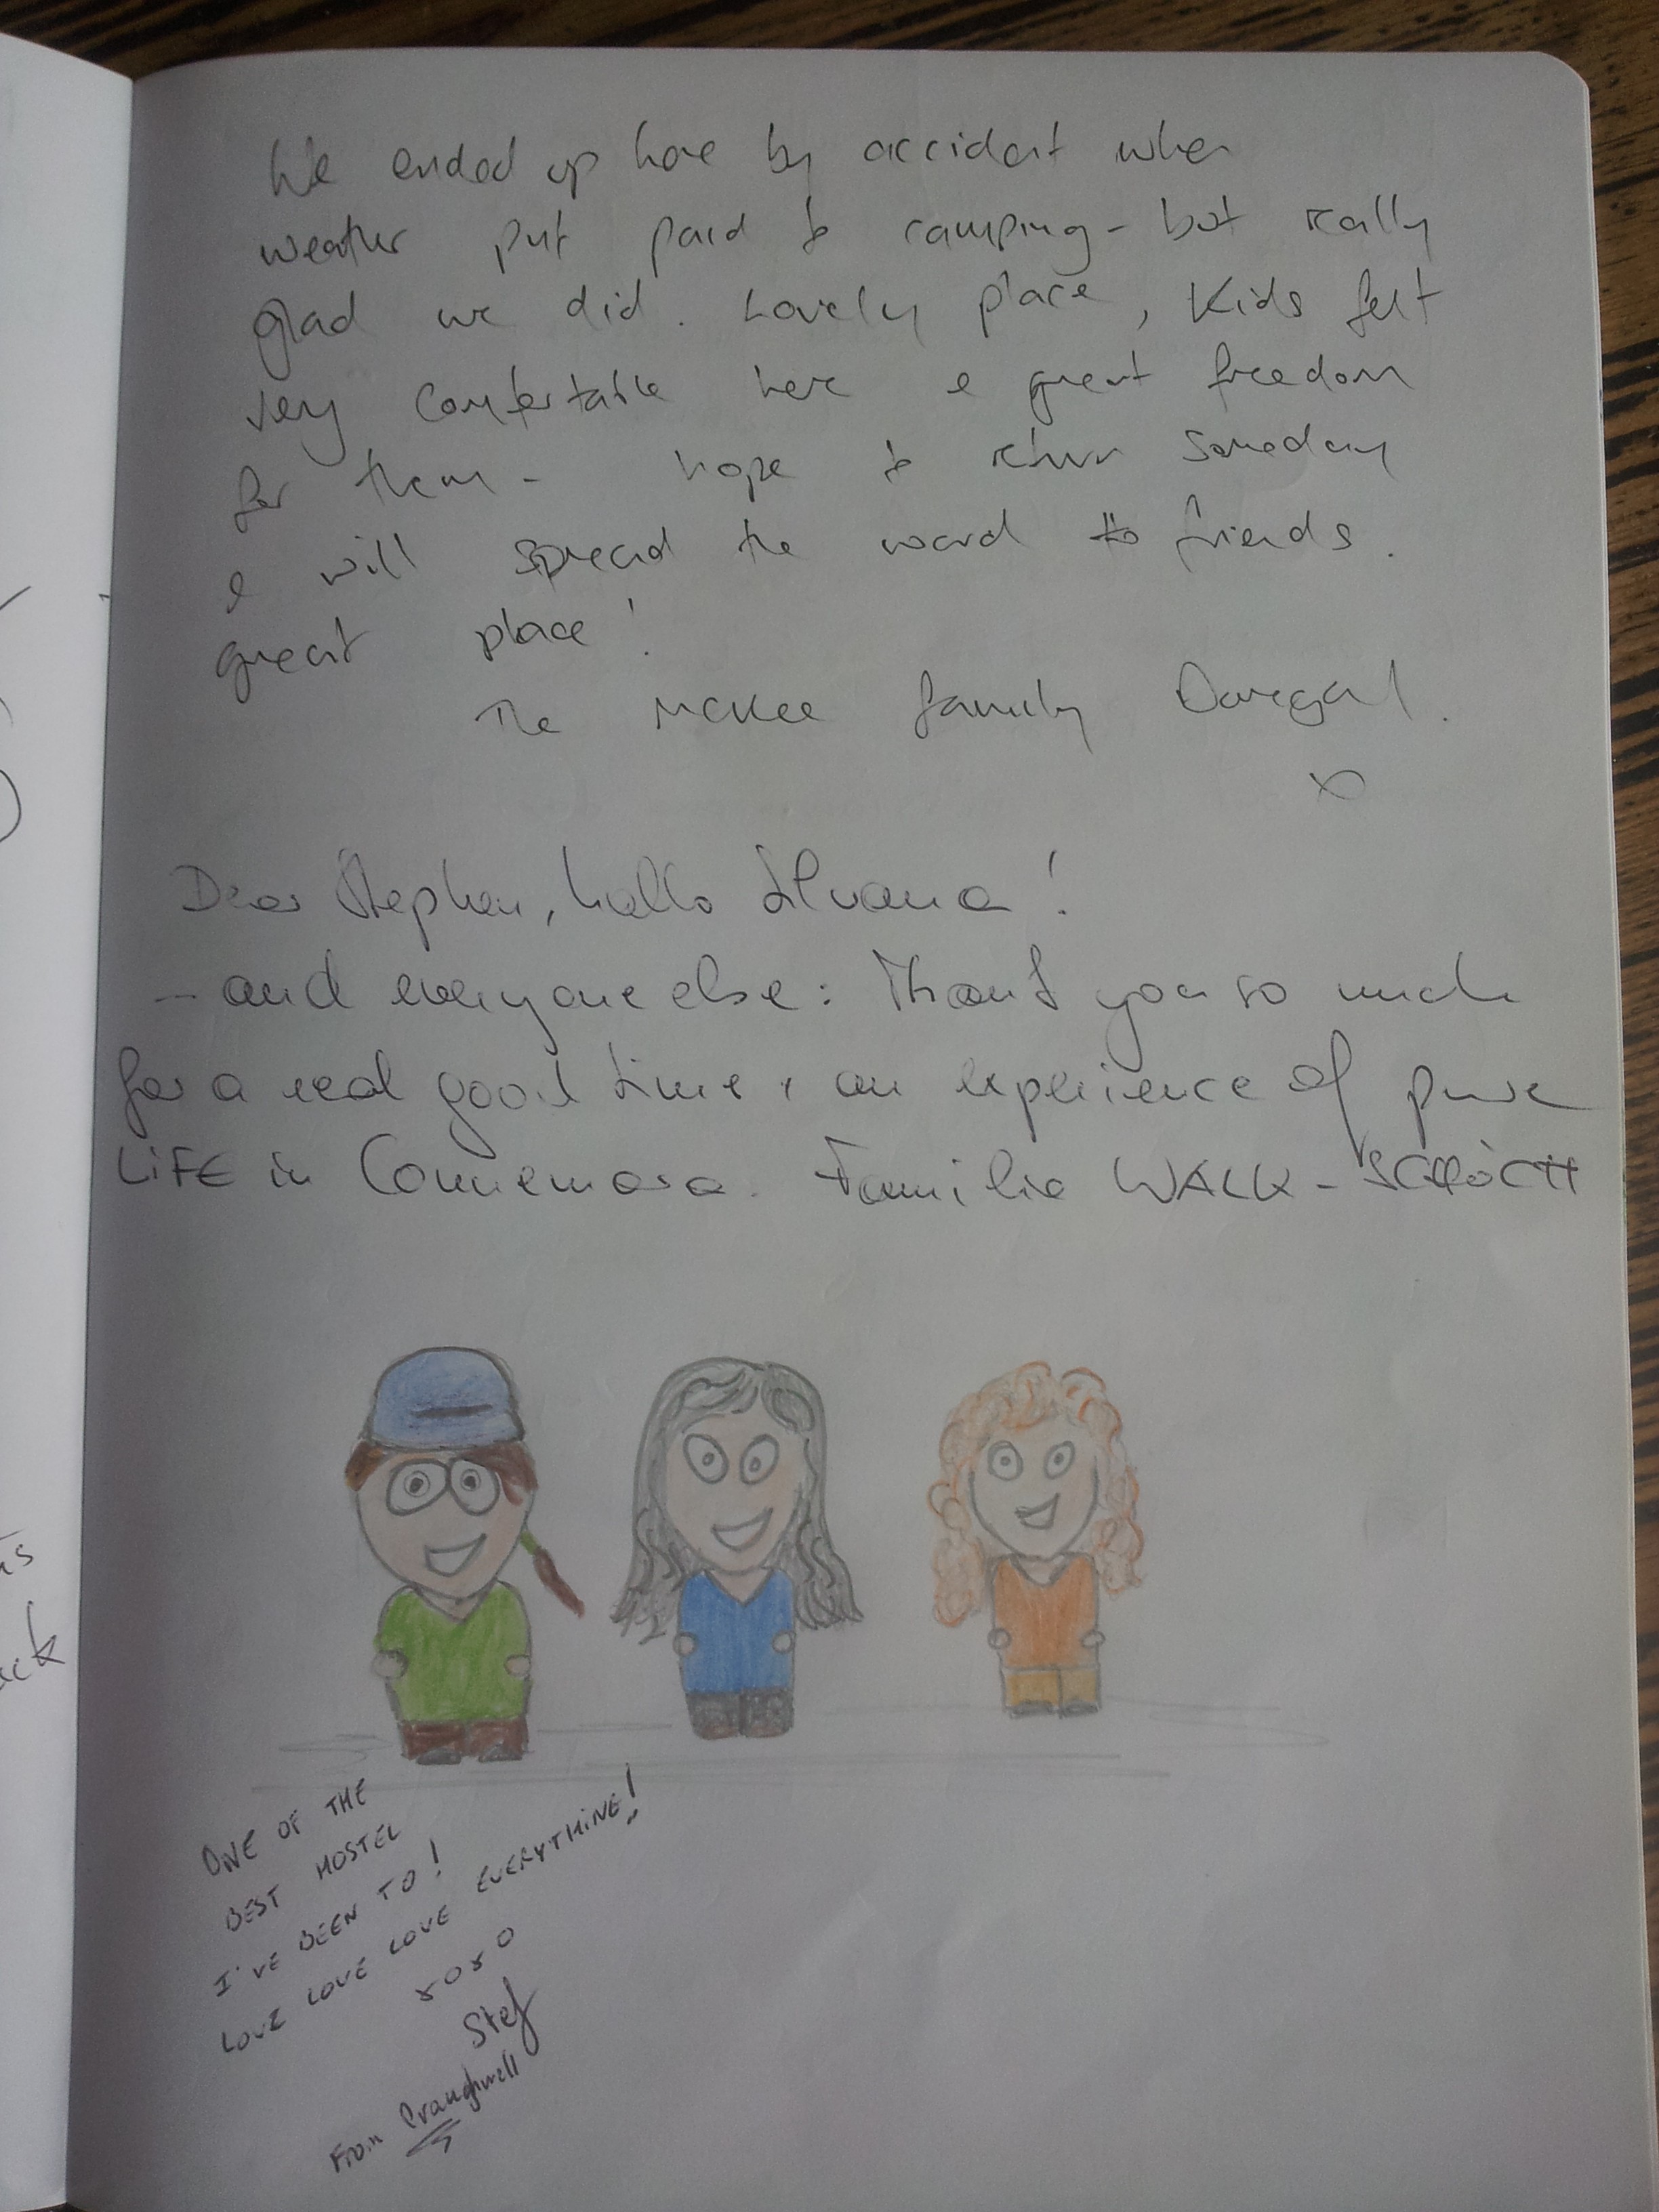 We ended up here by accident when
weather put paid to camping - but really
glad we did. Lovely place, Kids felt
very comfortable here & great freedom
for them - hope to return someday
& will spread the word to friends.
great place!
The McKee family Donegal.
x
Dear Stephen, hallo Silvana!
- and everyone else: Thank you so much
for a real good time, an experience of pure
LiFE in Connemara. Familie WALK -
ONE OF THE
BEST HOSTEL
I'VE BEEN TO!
LOVE LOVE LOVE LOVE EVERYTHING!
xoxo
Stef
From Craughwell
ck